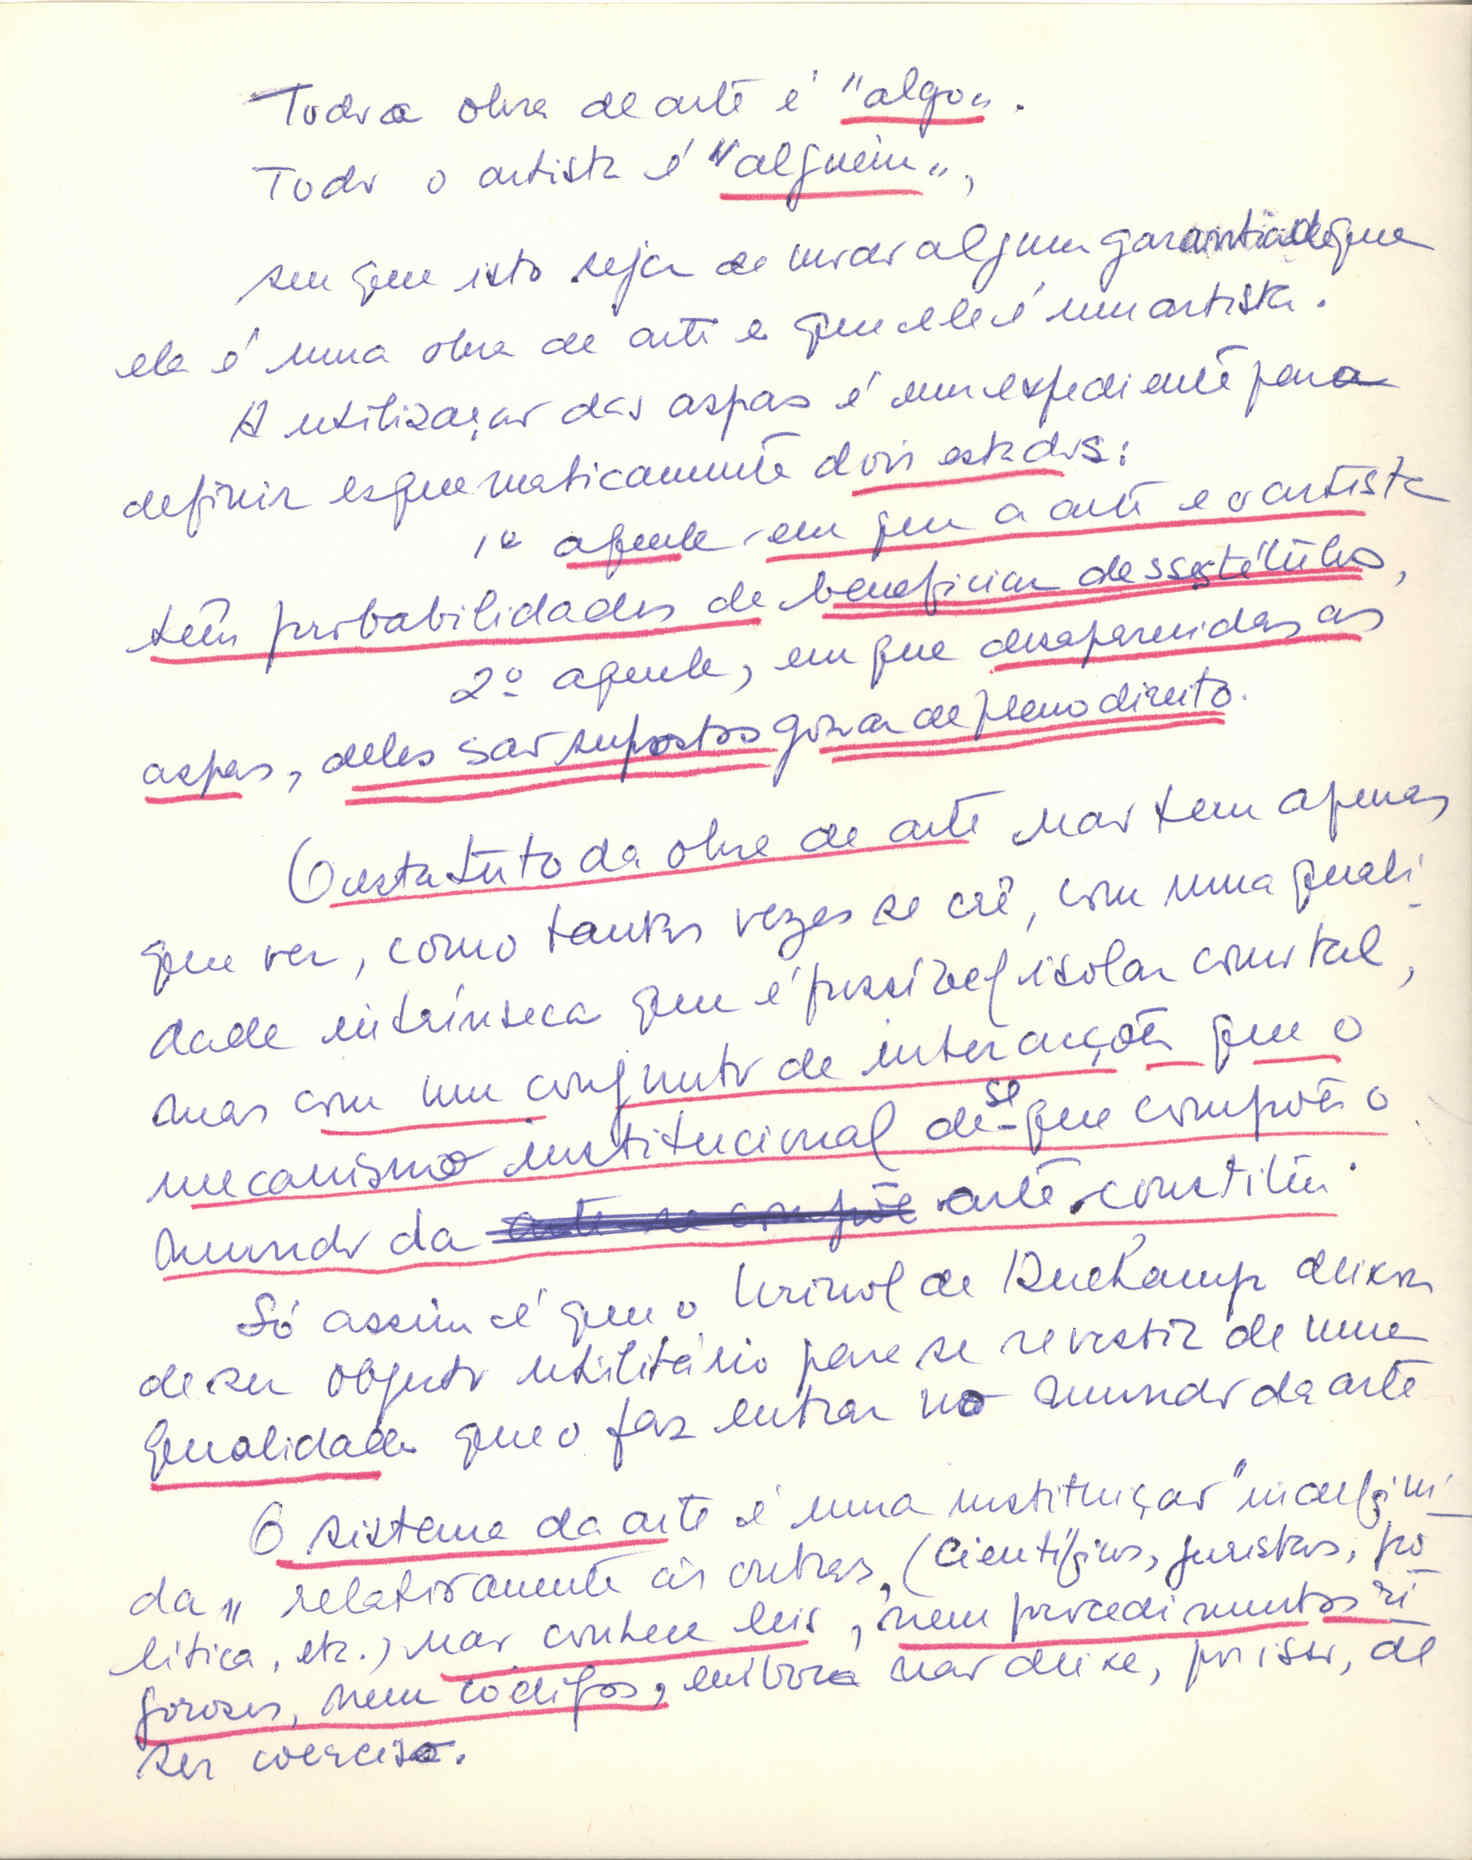 Toda a obra de arte é "algo".
Todo o artista é "alguém",
sem que isto seja de modo algum garantia de que
ela é uma obra de arte e que ele é um artista.
A utilização das aspas é um expediente para
definir esquematicamente dois estados:
1º aquele em que a arte e o artista
têm probabilidades de beneficiar desses títulos,
2º aquele, em que desaparecidas as
aspas, deles são supostos gozar de pleno direito.
O estatuto da obra de arte não tem apenas
que ver, como tantas vezes se crê, com uma quali
dade intrínseca que é possível isolar como tal,
mas com um conjunto de interacções que o
mecanismo institucional de que se compõe o
mundo da arte constitui.
Só assim é que o Urinol de Duchamp deixa
de ser objecto utilitário para se revestir de uma
qualidade que o faz entrar no mundo da arte
O sistema da arte é uma instituição "indefini
da" relativamente às outras, (científicas, juristas, po
lítica, etc.) não contem leis, nem procedimentos ri
gorosos, nem códigos, embora não deixe, por isso, de
ser coerciva.